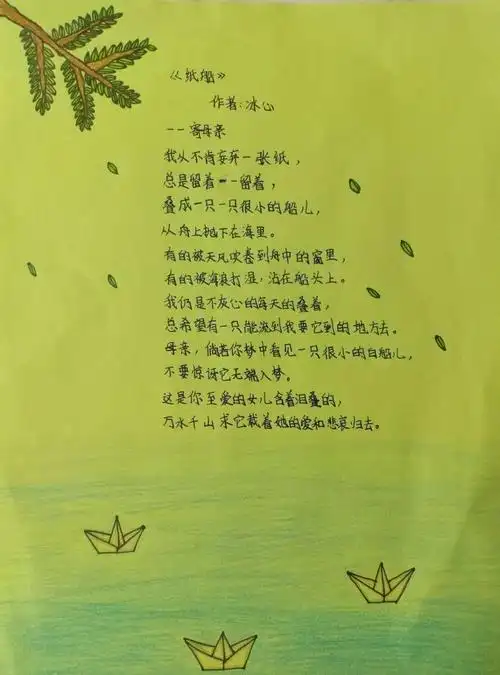 《纸船》
作者：冰心
——寄母亲
我从不肯妄弃一张纸，
总是留着——留着，
叠成一只一只很小的船儿，
从舟上抛下在海里。
有的被天风吹卷到舟中的窗里，
有的被海浪打湿，沾在船头上。
我仍是不灰心的每天的叠着，
总希望有一只能流到我要它到的地方去。
母亲，倘若你梦中看见一只很小的白船儿，
不要惊讶它无端入梦。
这是你至爱的女儿含着泪叠的，
万水千山求它载着她的爱和悲哀归去。